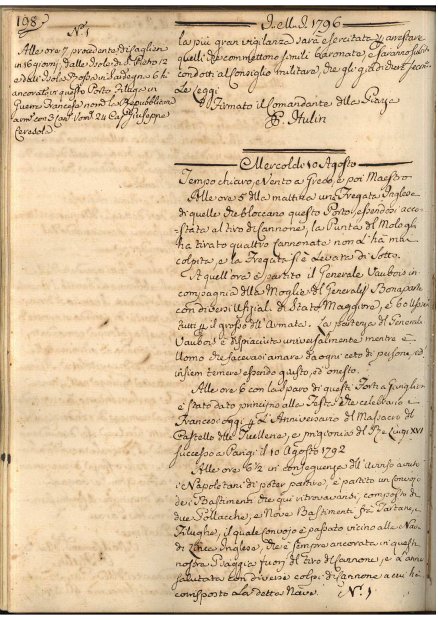 198
N. 1
Alle ore 7 procedente di Cagliari
in 16 giorni, dalle Isole di S. Pietro 12
e dall'Isola Rossa in Sardegna 6 hà
ancorato in questo Porto, Filuga in
Guerra Francese nom. la Repubblicana
arm. con 3 Can. Uom. 24 Cap. Giuseppe
Cereola
I. M. D. 1796
la più gran vigilanza sarà esercitata p. arrestare
quelli che commettono simili baronate, e saranno subito
condotti al Consiglio militare, che gli giudicherà secondo
Le Leggi
Firmato il Comandante della Piazza
Hulin
Mercoldì 10 Agosto
Tempo chiaro, e Vento a Greco, e poi Maestro
Alle ore 5 della mattina una Fregata Inglese
di quelle che bloccano questo Porto, essendosi acco-
stata al tiro di Cannone, la Punta del Molo gli
ha tirato quattro Cannonate non l'hà mai
colpita, e la Fregata si è Levata di Sotto.
A quell'ora è partito il Generale Vaubois in
compagnia della Moglie del Generale Bonaparte
con diversi Ufizial. di Stato Maggiore, e 60 Ussari
tutti p. il grosso dell'Armata. La partenza del Generale
Vaubois è dispiaciuta universalmente mentre è
Uomo che facevasi amare da ogni ceto di persone, ed
insiem temere essendo giusto, ed onesto.
Alle ore 6 con lo sparo di questi Forti a
è stato dato principio alla Festa che celebrano i
Francesi oggi p. l'Anniversario del Massacro del
Castello delle Tuellerie, e prigionia del Re Luigi XVI
successo a Parigi il 10 Agosto 1792
Alle ore 6 1/2 in conseguenza dell'avviso avuto
i Napoletani di poter partire, è partito un Convojo
dei Bastimenti che qui ritrovavansi, composto di
due Pollacche, e Nove Bastimenti frà Tartane, e
Filughe, il quale Convojo è passato vicino alla Nave
di Linea Inglese, che è sempre ancorata in questa
nostra Piaggia fuori del tiro di Cannone, e l'anno
salutata con diverse colpi di Cannone a cui hà
corrisposto la detta Nave. N. 1